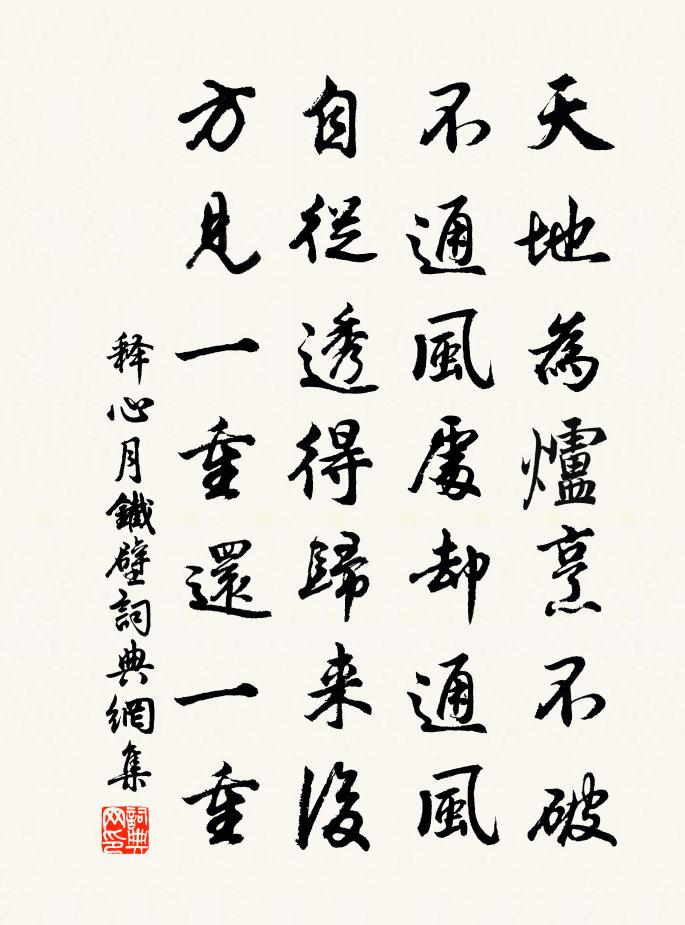 天地為爐烹不破
不通風處却通風
自從透得歸来後
方見一重還一重
释心月鐵壁詞典網集
詞典網印